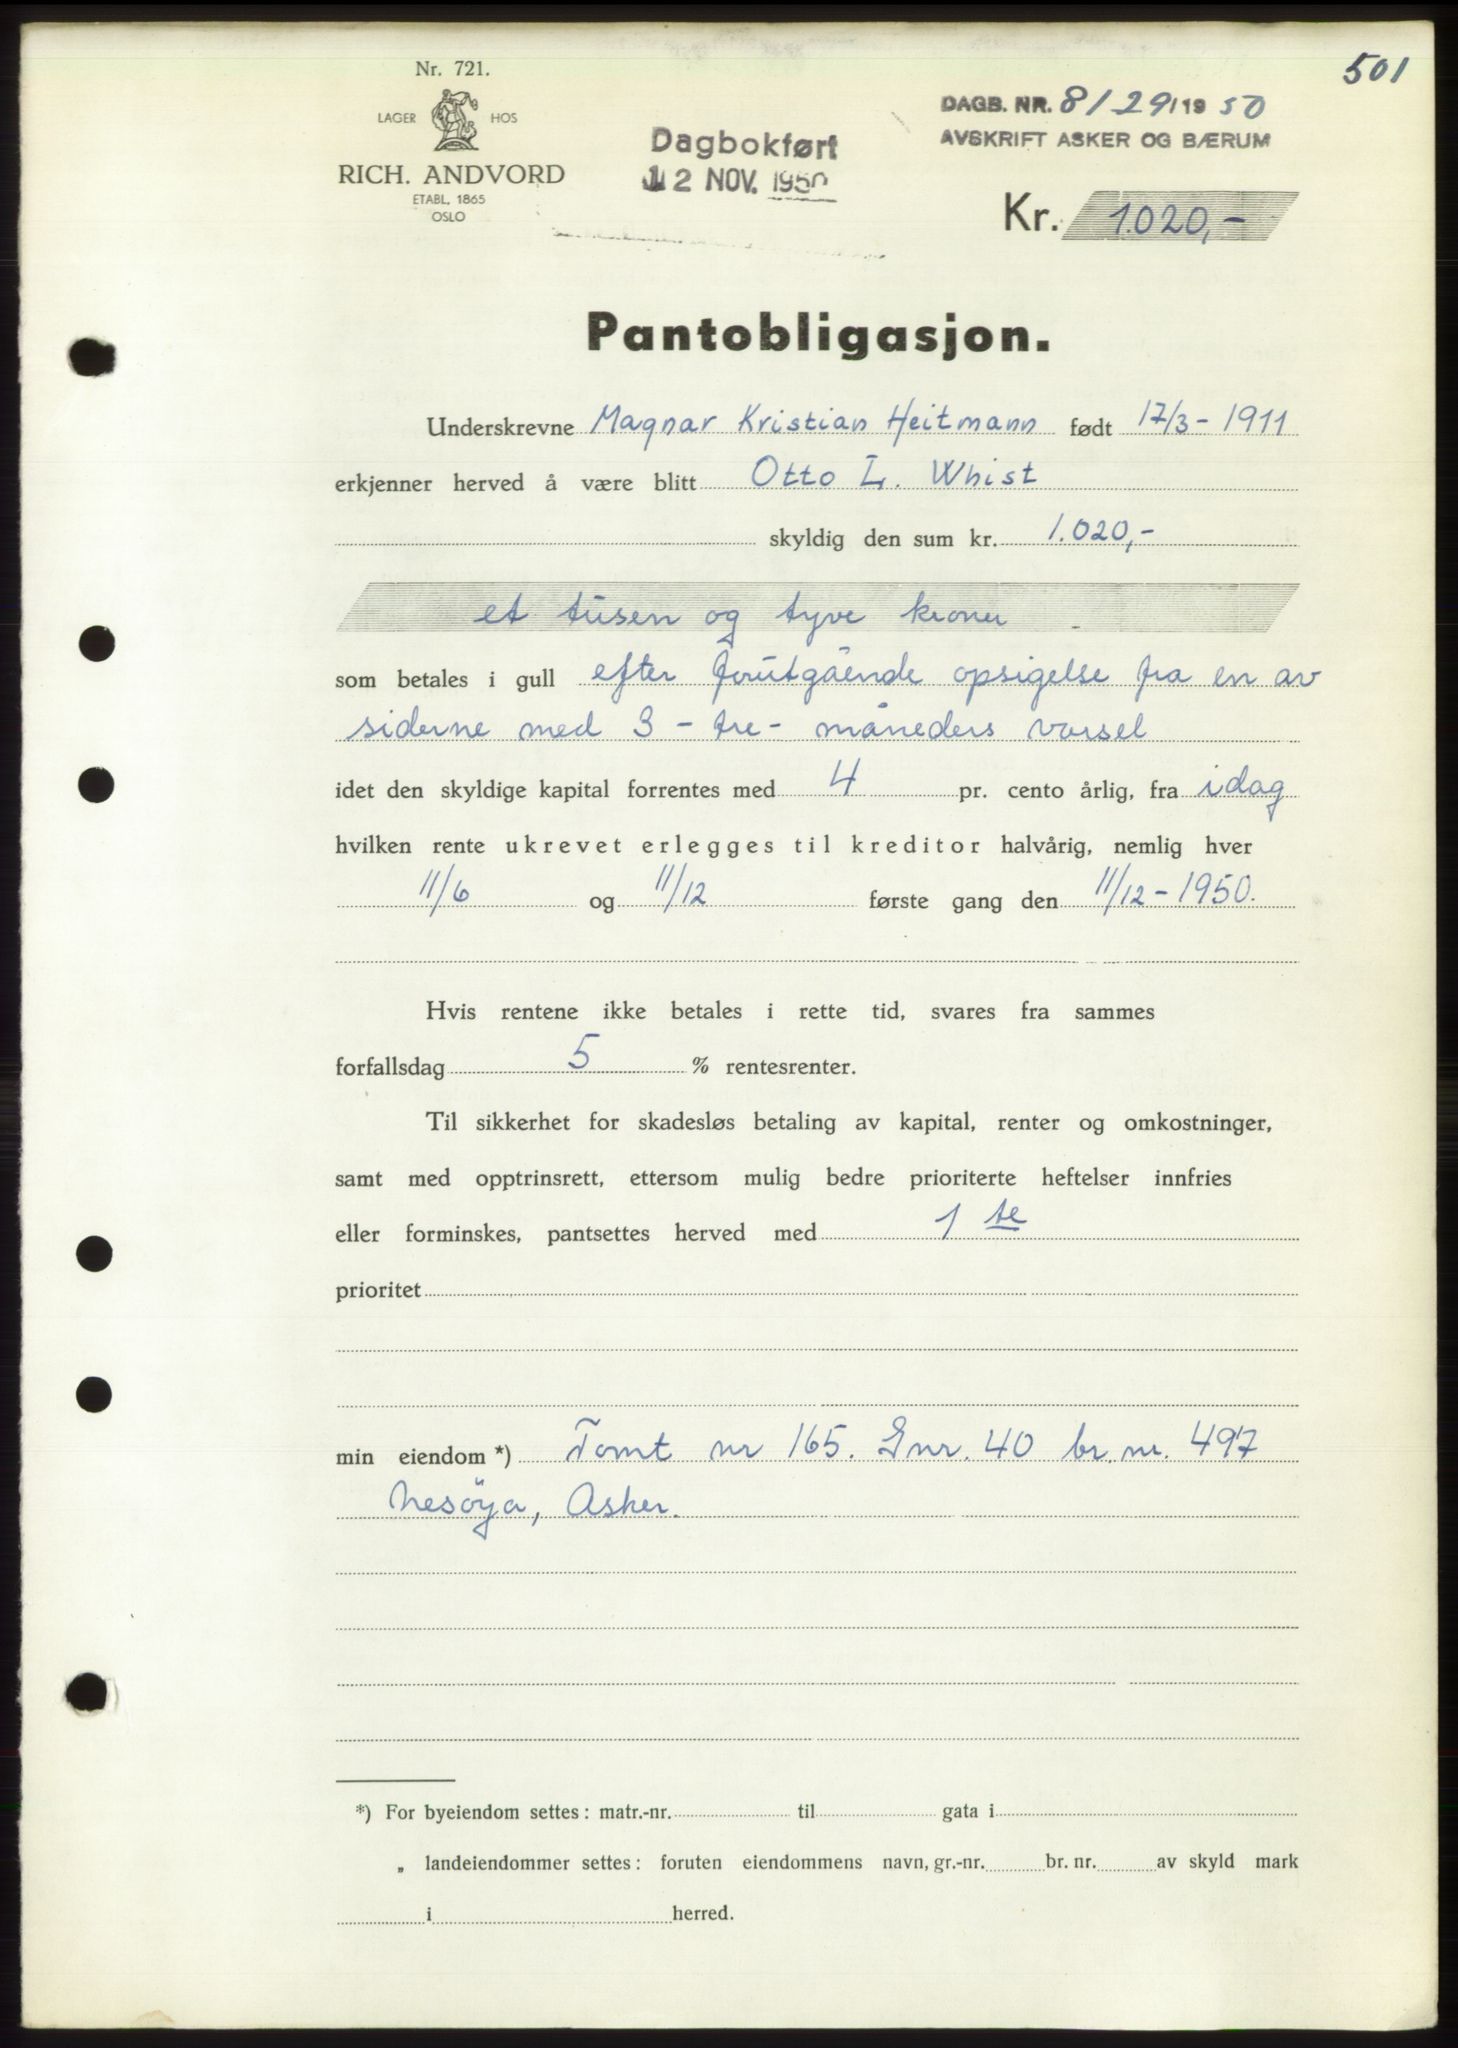 501
Nr. 721.
LAGER HOS
RICH. ANDVORD
ETABL. 1865
OSLO
Dagbokført
12 NOV. 1950
DAGB. NR. 8129/19 50
AVSKRIFT ASKER OG BÆRUM
Kr. 1.020,-
Pantobligasjon.
Underskrevne Magnar Kristian Heitmann født 17/3 - 1911
erkjenner herved å være blitt Otto L. Whist
skyldig den sum kr. 1.020,-
et tusen og tyve kroner
som betales i gull efter forutgående opsigelse fra en av
siderne med 3 - tre - måneders varsel
idet den skyldige kapital forrentes med 4 pr. cento årlig, fra idag
hvilken rente ukrevet erlegges til kreditor halvårig, nemlig hver
11/6 og 11/12 første gang den 11/12 - 1950.
Hvis rentene ikke betales i rette tid, svares fra sammes
forfallsdag 5 % rentesrenter.
Til sikkerhet for skadesløs betaling av kapital, renter og omkostninger,
samt med opptrinsrett, ettersom mulig bedre prioriterte heftelser innfries
eller forminskes, pantsettes herved med 1 te
prioritet
min eiendom *) Tomt nr 165. Gnr. 40 br. nr. 497
Nesöya, Asker.
*) For byeiendom settes: matr.-nr. til gata i
„ landeiendommer settes: foruten eiendommens navn, gr.-nr. br. nr. av skyld mark
i herred.